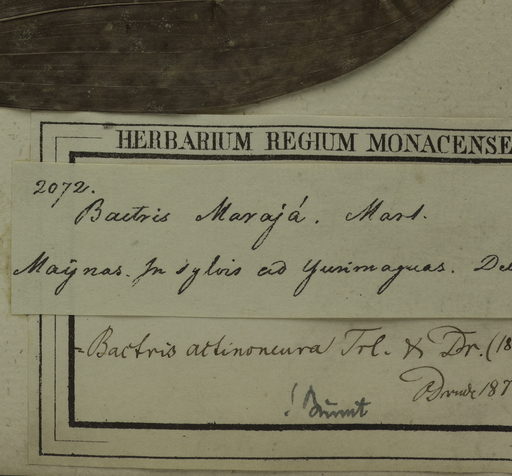 HERBARIUM REGIUM MONACENSE
2072.
Bactris Marajá. Mart.
Maÿnas. In sylvis ad Yurimaguas. De
= Bactris actinoneura Trl. & Dr. (18
Drude 187
! Burret